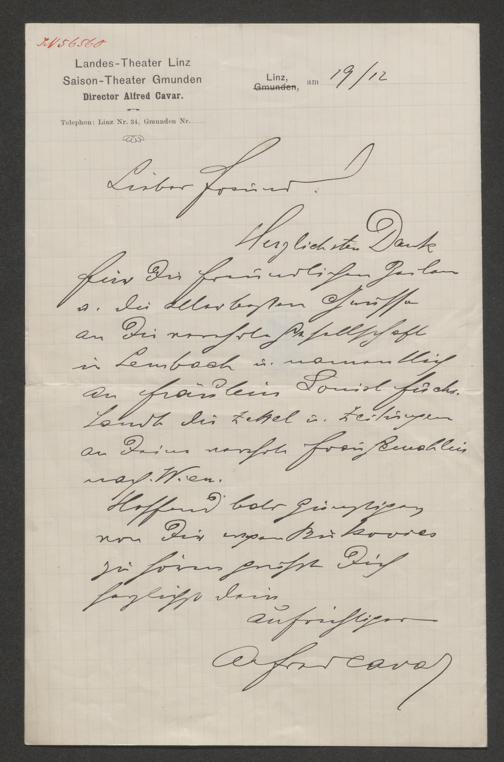 IN 56560
Landes-Theater Linz
Saison-Theater Gmunden
Director Alfred Cavar.
Telephon: Linz Nr. 34, Gmunden Nr.
Linz,
Gmunden, am 19/12
Lieber Freund!
Herzlichsten Dank
für die freundlichen Zeilen
u. die allerbesten Grüsse
an die verehrte Gesellschaft
in Lembach u. namentlich
an Fräulein Louise Fuchs.
Sandte die Zettel u. Zeitungen
an Deine verehrte Frau Gemahlin
nach Wien.
Hoffend bald günstiges
von Dir wegen Bukovics
zu hören grüßt Dich
herzlichst Dein
aufrichtiger
Alfred Cavar